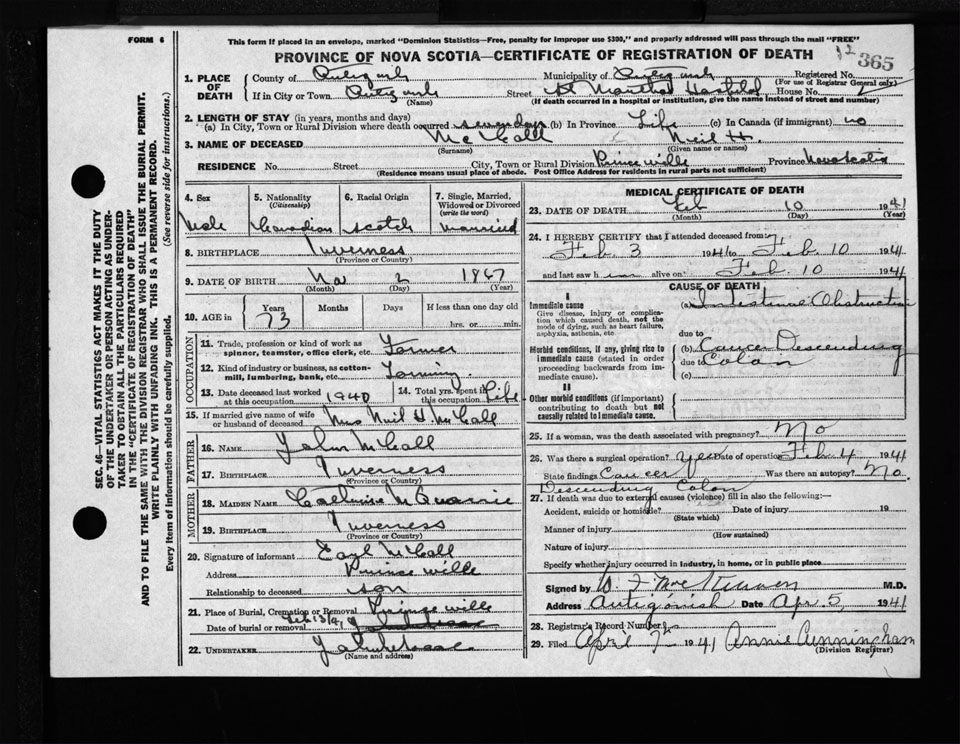 FORM 6
This form if placed in an envelope, marked "Dominion Statistics—Free, penalty for improper use $300," and properly addressed will pass through the mail "FREE"
PROVINCE OF NOVA SCOTIA—CERTIFICATE OF REGISTRATION OF DEATH
12 365
SEC. 46—VITAL STATISTICS ACT MAKES IT THE DUTY
OF THE UNDERTAKER OR PERSON ACTING AS UNDER-
TAKER TO OBTAIN ALL THE PARTICULARS REQUIRED
IN THE "CERTIFICATE OF REGISTRATION OF DEATH"
AND TO FILE THE SAME WITH THE DIVISION REGISTRAR WHO SHALL ISSUE THE BURIAL PERMIT.
WRITE PLAINLY WITH UNFADING INK. THIS IS A PERMANENT RECORD.
Every item of information should be carefully supplied. (See reverse side for instructions.)
1. PLACE OF DEATH
County of Antigonish Municipality of Antigonish Registered No.
(For use of Registrar General only)
If in City or Town Antigonish Street St Martha Hospital House No.
(Name) (If death occurred in a hospital or institution, give the name instead of street and number)
2. LENGTH OF STAY (in years, months and days)
(a) In City, Town or Rural Division where death occurred seven days (b) In Province Life (c) In Canada (if immigrant) no
3. NAME OF DECEASED McCall Neil H.
(Surname) (Given name or names)
RESIDENCE No. Street City, Town or Rural Division Princeville Province Nova Scotia
(Residence means usual place of abode. Post Office Address for residents in rural parts not sufficient)
4. Sex Male
5. Nationality (Citizenship) Canadian
6. Racial Origin Scotch
7. Single, Married, Widowed or Divorced (write the word) Married
8. BIRTHPLACE Inverness
(Province or Country)
9. DATE OF BIRTH 2 1867
(Month) (Day) (Year)
10. AGE in Years Months Days If less than one day old
73 hrs. or min.
OCCUPATION
11. Trade, profession or kind of work as
spinner, teamster, office clerk, etc. Farmer
12. Kind of industry or business, as cotton-
mill, lumbering, bank, etc. Farming
13. Date deceased last worked at this occupation 1940
14. Total yrs. spent in this occupation Life
15. If married give name of wife
or husband of deceased Mrs Neil H McCall
FATHER
16. NAME John McCall
17. BIRTHPLACE Inverness
(Province or Country)
MOTHER
18. MAIDEN NAME Catherine McQuarrie
19. BIRTHPLACE Inverness
(Province or Country)
20. Signature of informant Earl McCall
Address Princeville
Relationship to deceased son
21. Place of Burial, Cremation or Removal Princeville
Date of burial or removal Feb 13
22. UNDERTAKER
(Name and address)
MEDICAL CERTIFICATE OF DEATH
23. DATE OF DEATH Feb 10 1941
(Month) (Day) (Year)
24. I HEREBY CERTIFY that I attended deceased from:
Feb. 3 1941 to Feb. 10 1941
and last saw him alive on Feb 10 1941
CAUSE OF DEATH
I
Immediate cause (a) Intestinal Obstruction
Give disease, injury or complica-
tion which caused death, not the
mode of dying, such as heart failure,
asphyxia, asthenia, etc
due to
Morbid conditions, if any, giving rise to (b) Cancer Descending
immediate cause (stated in order due to Colon
proceeding backwards from im-
mediate cause). (c)
II
Other morbid conditions (if important)
contributing to death but not
causally related to immediate cause.
25. If a woman, was the death associated with pregnancy? No
26. Was there a surgical operation? Yes Date of operation Feb 4 1941
State findings Cancer Was there an autopsy? No.
Descending Colon
27. If death was due to external causes (violence) fill in also the following:—
Accident, suicide or homicide? Date of injury 19
(State which)
Manner of injury
(How sustained)
Nature of injury
Specify whether injury occurred in industry, in home, or in public place
Signed by M.D.
Address Antigonish Date Apr. 5, 1941
28. Registrar's Record Number
29. Filed April 7th 1941 Annie Cunningham
(Division Registrar)